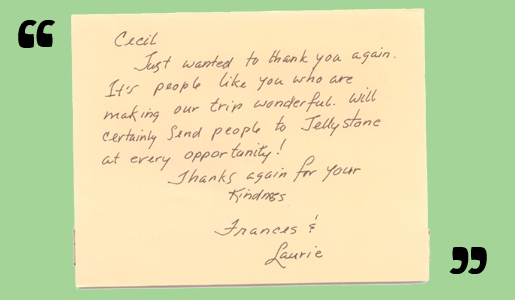 Cecil
Just wanted to thank you again.
It's people like you who are
making our trip wonderful. Will
certainly send people to Jellystone
at every opportunity!
Thanks again for your
Kindness
Frances &
Laurie